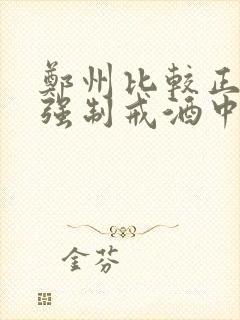 鄭州比較正
强制戒酒中
金芬